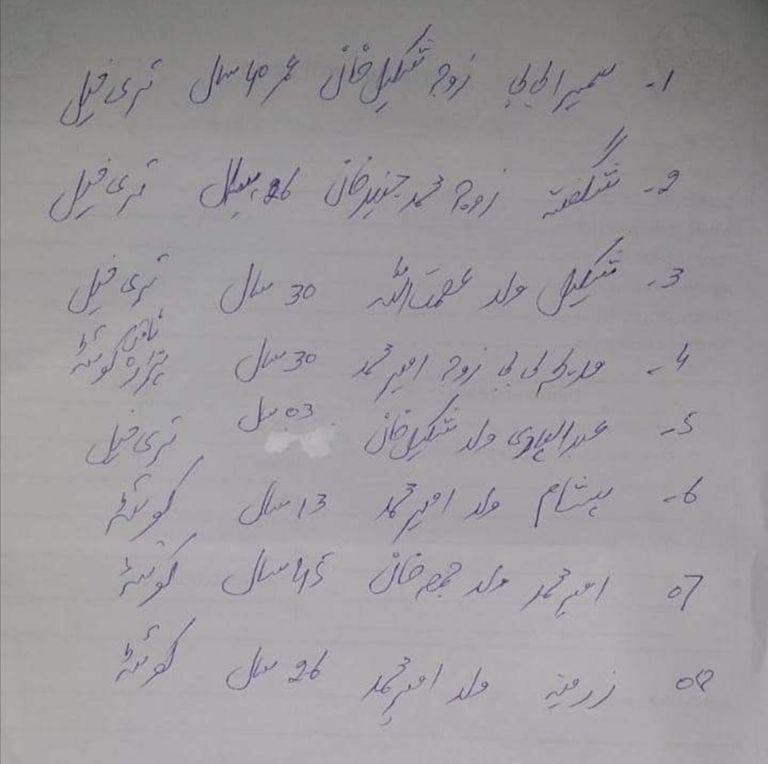 1- سمیرا بی بی زوجہ شکیل خان عمر 40 سال تری خیل
2- شگفتہ زوجہ محمد جنید خان 26 سال تری خیل
3- شکیل ولد عصمت اللہ 30 سال تری خیل
4- مریم بی بی زوجہ امیر محمد 30 سال ہزارہ ٹاؤن کوئٹہ
5- عبدالہادی ولد شکیل خان 03 سال تری خیل
6- ہشام ولد امیر محمد 13 سال کوئٹہ
07 امیر محمد ولد جمعہ خان 45 سال کوئٹہ
08 زرمینہ ولد امیر محمد 26 سال کوئٹہ